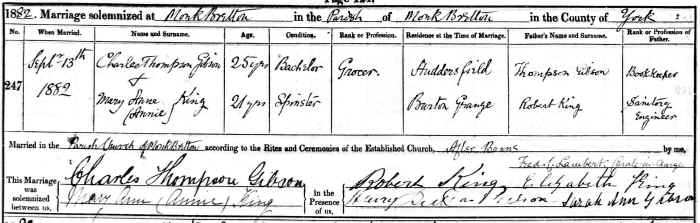 1882. Marriage solemnized at Monk Bretton in the Parish of Monk Bretton in the County of York
No. When Married. Name and Surname. Age. Condition. Rank or Profession. Residence at the Time of Marriage. Father's Name and Surname. Rank or Profession of Father.
247 Septr 13th 1882 Charles Thompson Gibson 25 yrs Bachelor Grocer. Huddersfield Thompson Gibson Bookkeeper
&
Mary Anne (Annie) King 21 yrs Spinster Burton Grange Robert King Sanitory Engineer
Married in the Parish Church of Monk Bretton according to the Rites and Ceremonies of the Established Church, After Banns by me,
Fred. J. Lambert, Curate in Charge
This Marriage was solemnized between us, Charles Thompson Gibson
Mary Ann (Annie) King
in the Presence of us, Robert King Elizabeth King
Henry Sarah Ann